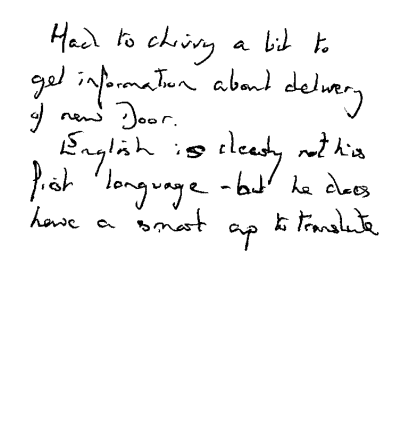 Had to chivvy a bit to
get information about delivery
of new Door.
English is clearly not his
first language - but he does
have a smart ap to translate